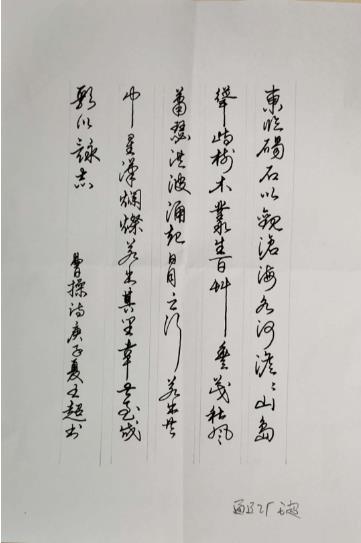 東臨碣石以觀滄海水何澹〻山島
聳峙樹木叢生百艸豐茂秋風
蕭瑟洪波涌起日月之行若出其
中星漢爛燦若出其里幸甚至哉
歌以詠志 曹操詩庚子夏王超书
王超